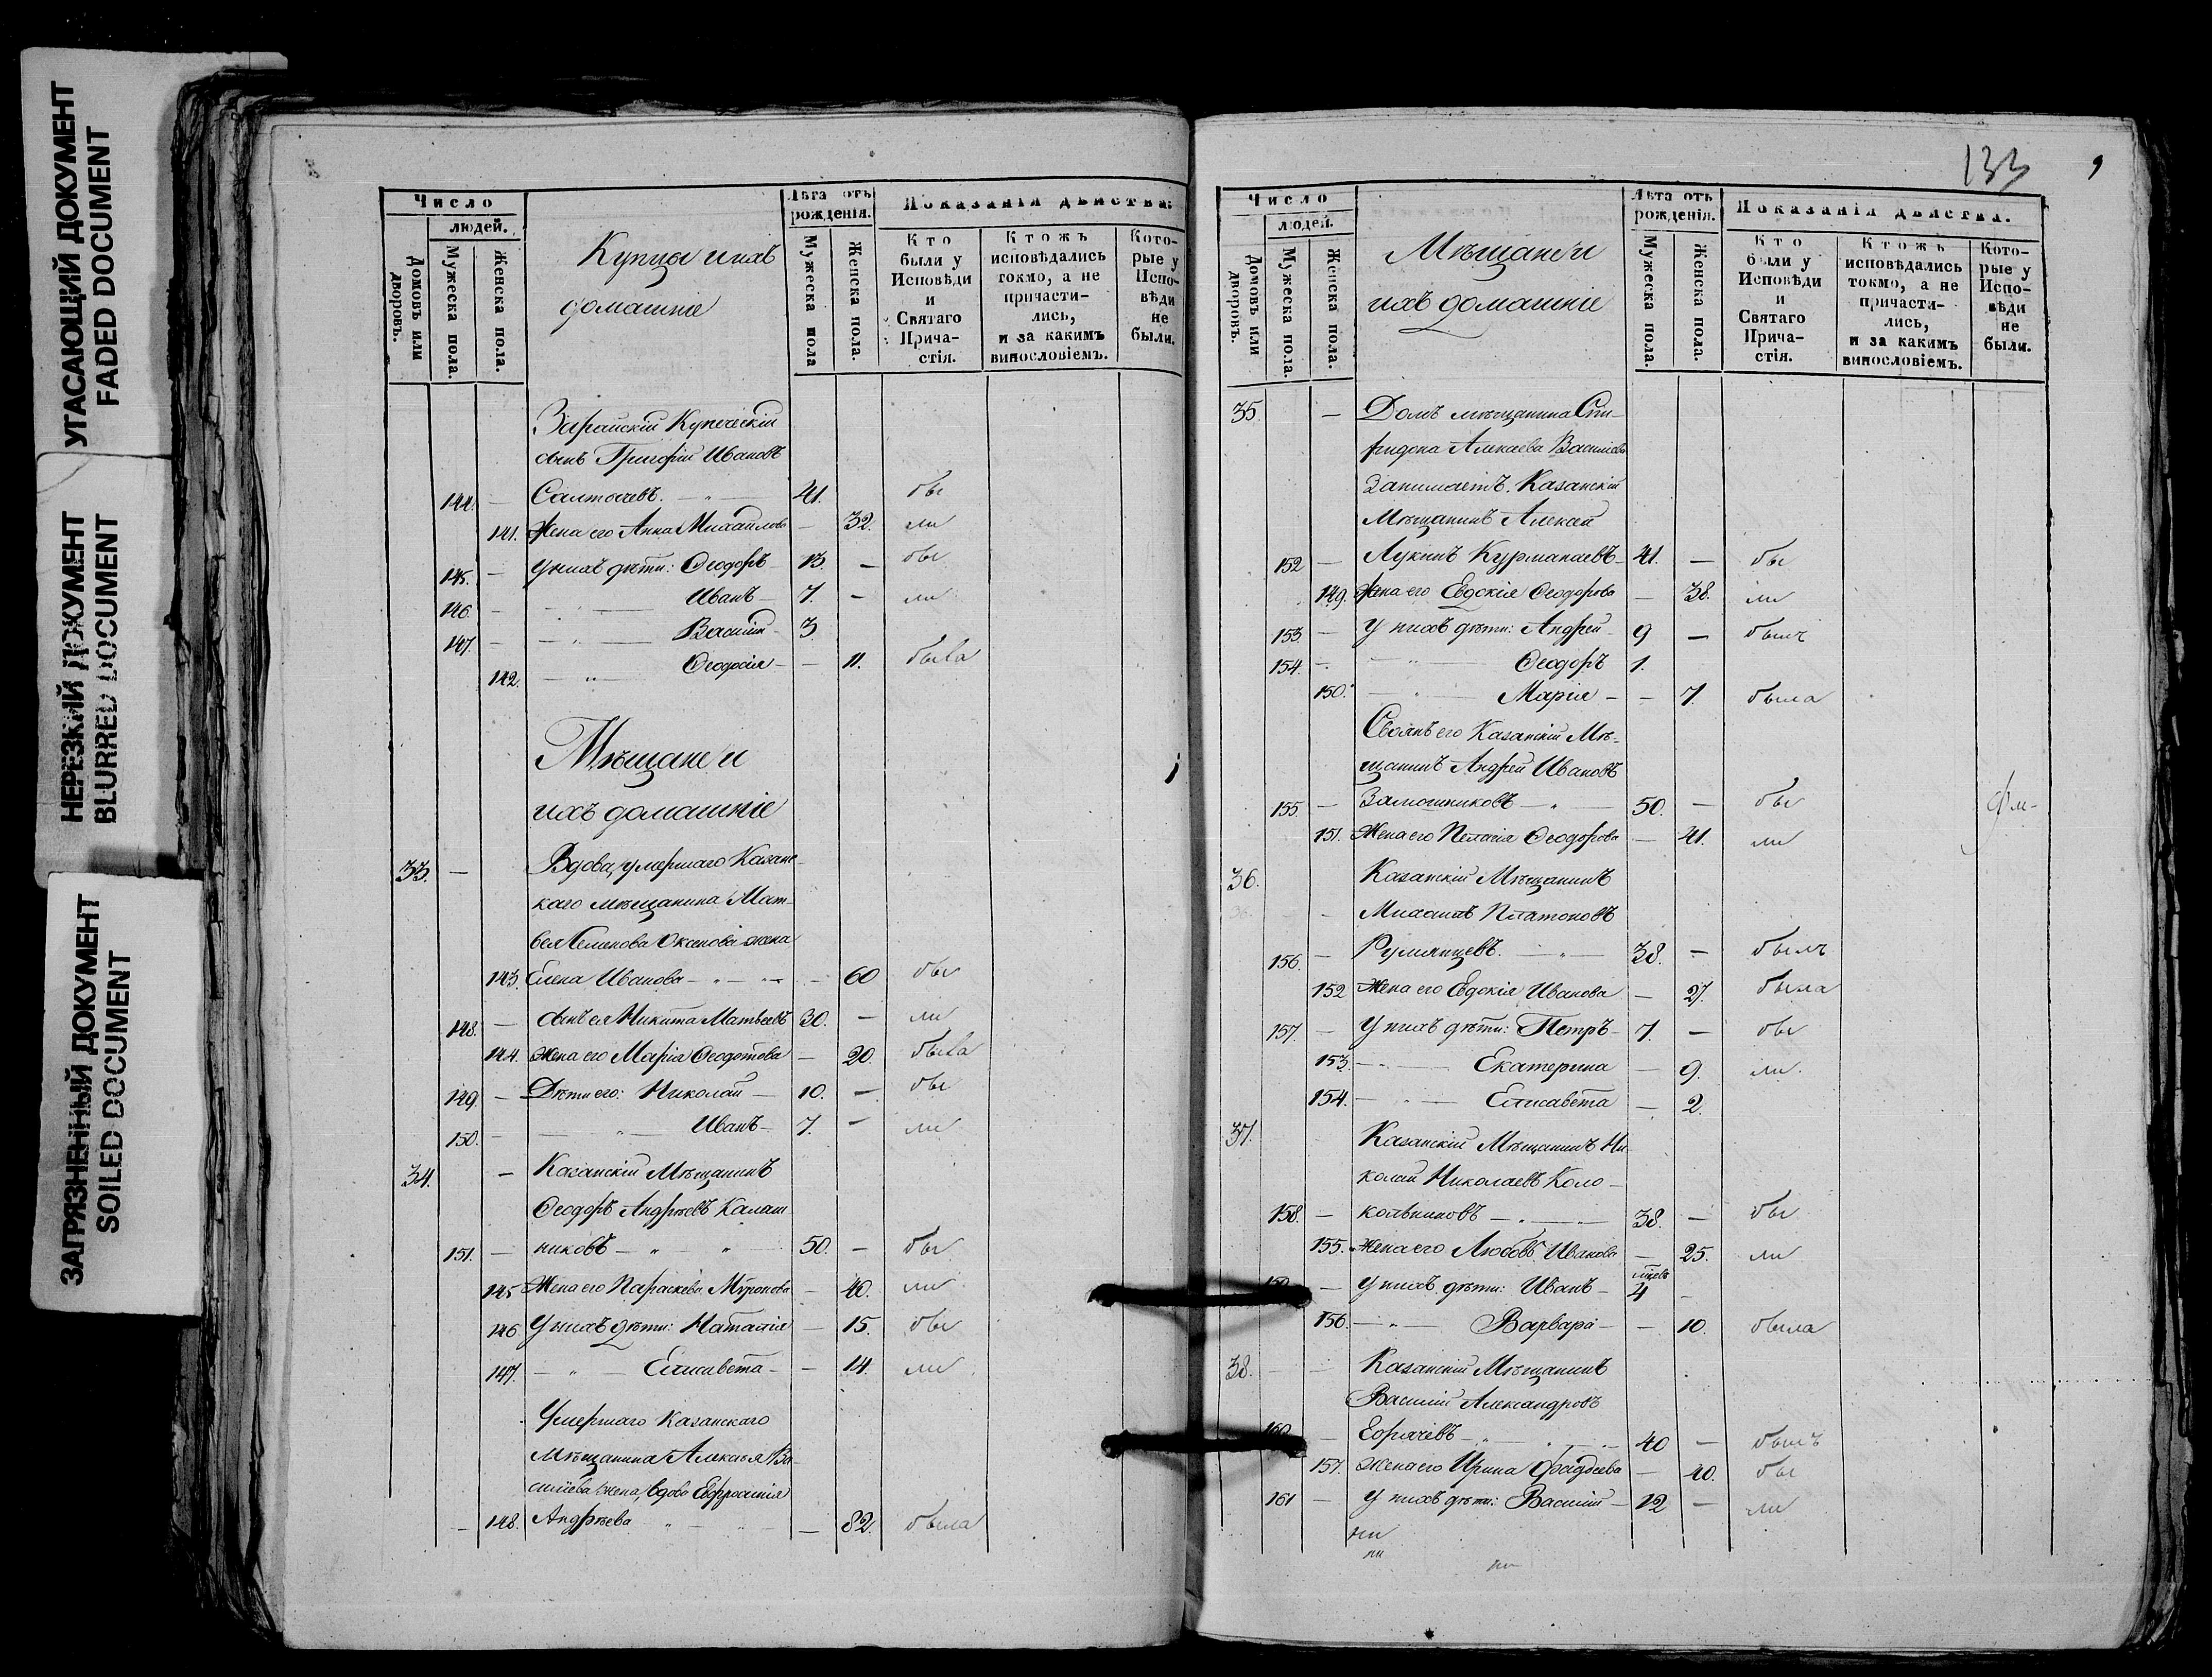 УГАСАЮЩИЙ ДОКУМЕНТ
FADED DOCUMENT
НЕРЕЗКИЙ ДОКУМЕНТ
BLURRED DOCUMENT
ЗАГРЯЗНЕННЫЙ ДОКУМЕНТ
SOILED DOCUMENT
Число
людей.
Домовъ или дворовъ.
Мужеска пола.
Женска пола.
Купцы и ихъ
домашніе
Лѣта отъ
рожденія.
Мужеска пола
Женска пола.
Показанія дѣйства.
Кто
были у
Исповѣди
и
Святаго
Прича-
стія.
Ктожъ
исповѣдались
токмо, а не
причасти-
лись,
и за какимъ
винословіемъ.
Кото-
рые у
Испо-
вѣди
не
были.
Зарайскій Купеческій
сынъ Григорій Ивановъ
144. — 41. бы
141. Жена его Анна Михайлова — 32. ли
145. — У нихъ дѣти: Ѳеодоръ 13. — бы
146. — Иванъ — 7. — ли
147. — Василій — 3.
142. — Ѳеодосія — — 11. была
Мѣщане и
ихъ домашніе
33. — Вдова, умершаго Казанс-
каго мѣщанина Мат-
вея Семенова жена
143. Елена Иванова — 60 бы
148. — сынъ ея Никита Матвеевъ 30. — ли
144. Жена его Марія Ѳеодотова — 20. была
149. — Дѣти его: Николай — 10. — бы
150. — Иванъ — 7. — ли
34. — Казанскій Мѣщанинъ
Ѳеодоръ Андреевъ Калаш
151. — никовъ — 50. — бы
145 Жена его Параскева Мѵронова — 40. ли
146 У нихъ дѣти: Наталія — 15. бы
147. — Елисавета — — 14. ли
Умершаго Казанскаго
Мѣщанина Алексея Ва-
силіева жена, вдова Евфросинія
— 148. Андреева — 82. была
133
Число
людей.
Домовъ или дворовъ.
Мужеска пола.
Женска пола.
Мѣщане и
ихъ домашніе
Лѣта отъ
рожденія.
Мужеска пола.
Женска пола.
Показанія дѣйства.
Кто
были у
Исповѣди
и
Святаго
Прича-
стія.
Ктожъ
исповѣдались
токмо, а не
причасти-
лись,
и за какимъ
винословіемъ.
Кото-
рые у
Испо-
вѣди
не
были.
35. — Домъ мѣщанина Спи-
ридона
занимаетъ Казанскій
Мѣщанинъ Алексей
152 — Лукинъ Курманаевъ — 41. — бы
149. Жена его Евдокія Ѳеодорова — 38. ли
153 — У нихъ дѣти: Андрей — 9 — былъ
154 — Ѳеодоръ 1.
150. — Марія — — 7. была
Своякъ его Казанскій Мѣ-
щанинъ Андрей Ивановъ
155. — 50. — бы
151. Жена его Пелагія Ѳеодорова — 41. ли
36. Казанскій Мѣщанинъ
— Михаилъ Платоновъ
156. — Румянцевъ. — 38. — былъ
152 Жена его Евдокія Иванова — 27. была
157. — У нихъ дѣти: Петръ — 7. — бы
153. — Екатерина — 9. ли
154. — Елисавета — 2.
37. Казанскій Мѣщанинъ Ни-
колай Николаевъ Коло-
158. — кольниковъ — 38. — бы
155. Жена его Любовь Иванова — 25. ли
— У нихъ дѣти: Иванъ — 4 —
156. — Варвара — — 10. была
38. — Казанскій Мѣщанинъ
Василій Александровъ
160 — 40 — былъ
157. Жена его Ирина Фаддеева — 40. бы
161 — У нихъ дѣти: Василій — 12 — ли